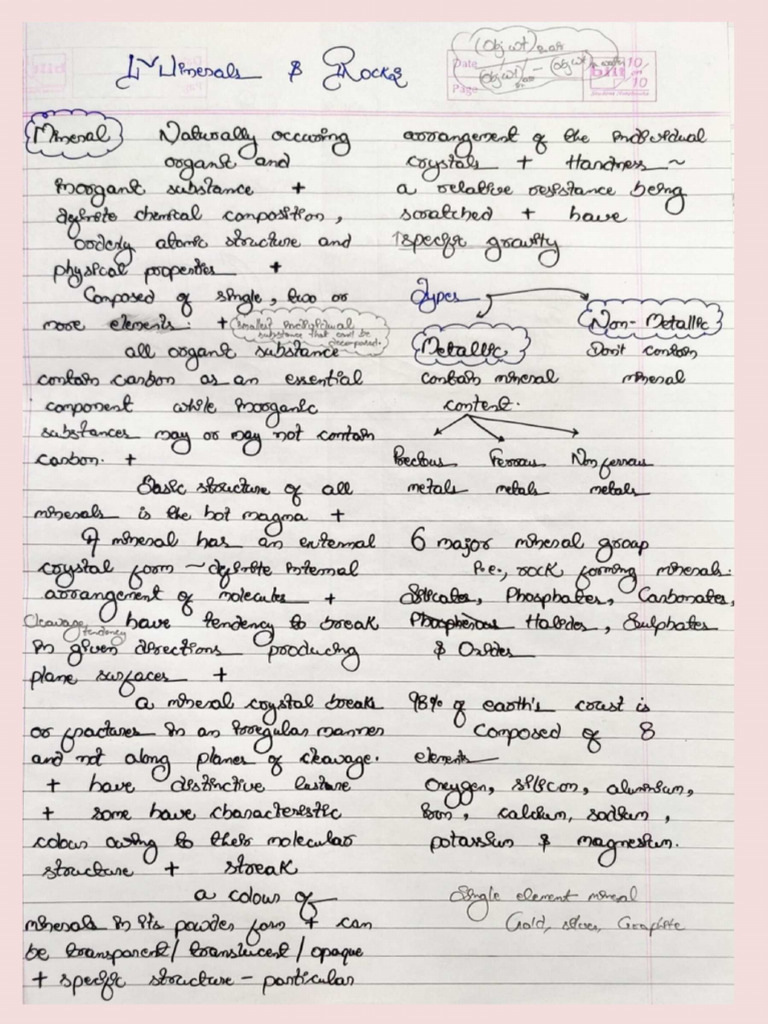 Minerals & Rocks
(Obj wt) air
(Obj wt) air - (Obj wt)
Date
Page
10/
10
Mineral Naturally occuring
organt and
inorgant substance +
definite chemical composition,
orderly atomic structure and
physical properties +
Composed of single, two or
more elements: + smallest individual
substance that can't be
decomposed.
all organt substance
contain carbon as an essential
component while inorganic
substances may or may not contain
carbon. +
Basic structure of all
minerals is the hot magma +
A mineral has an external
crystal form ~ definite internal
arrangement of molecules +
Cleavage tendency
have tendency to break
in given directions producing
plane surfaces +
a mineral crystal breaks
or fractures in an irregular manner
and not along planes of cleavage.
+ have distinctive lusture
+ some have characteristic
colour owing to their molecular
structure + streak
a colour of
minerals in its powder form + can
be transparent / translucent / opaque
+ specific structure - particular
arrangement of the individual
crystals + Hardness ~
a relative resistance being
scratched + have
specific gravity
Types
Metallic
contain mineral
content.
Non-Metallic
Don't contain
mineral
Precious Ferrous Non ferrous
metals metals metals
6 major mineral group
i.e., rock forming minerals.
Silicates, Phosphates, Carbonates,
Halides, Sulphates
& Oxides
98% of earth's crust is
Composed of 8
elements
oxygen, silicon, aluminium,
Iron, calcium, sodium,
potassium & magnesium.
Single element mineral
Gold, silver, Graphite